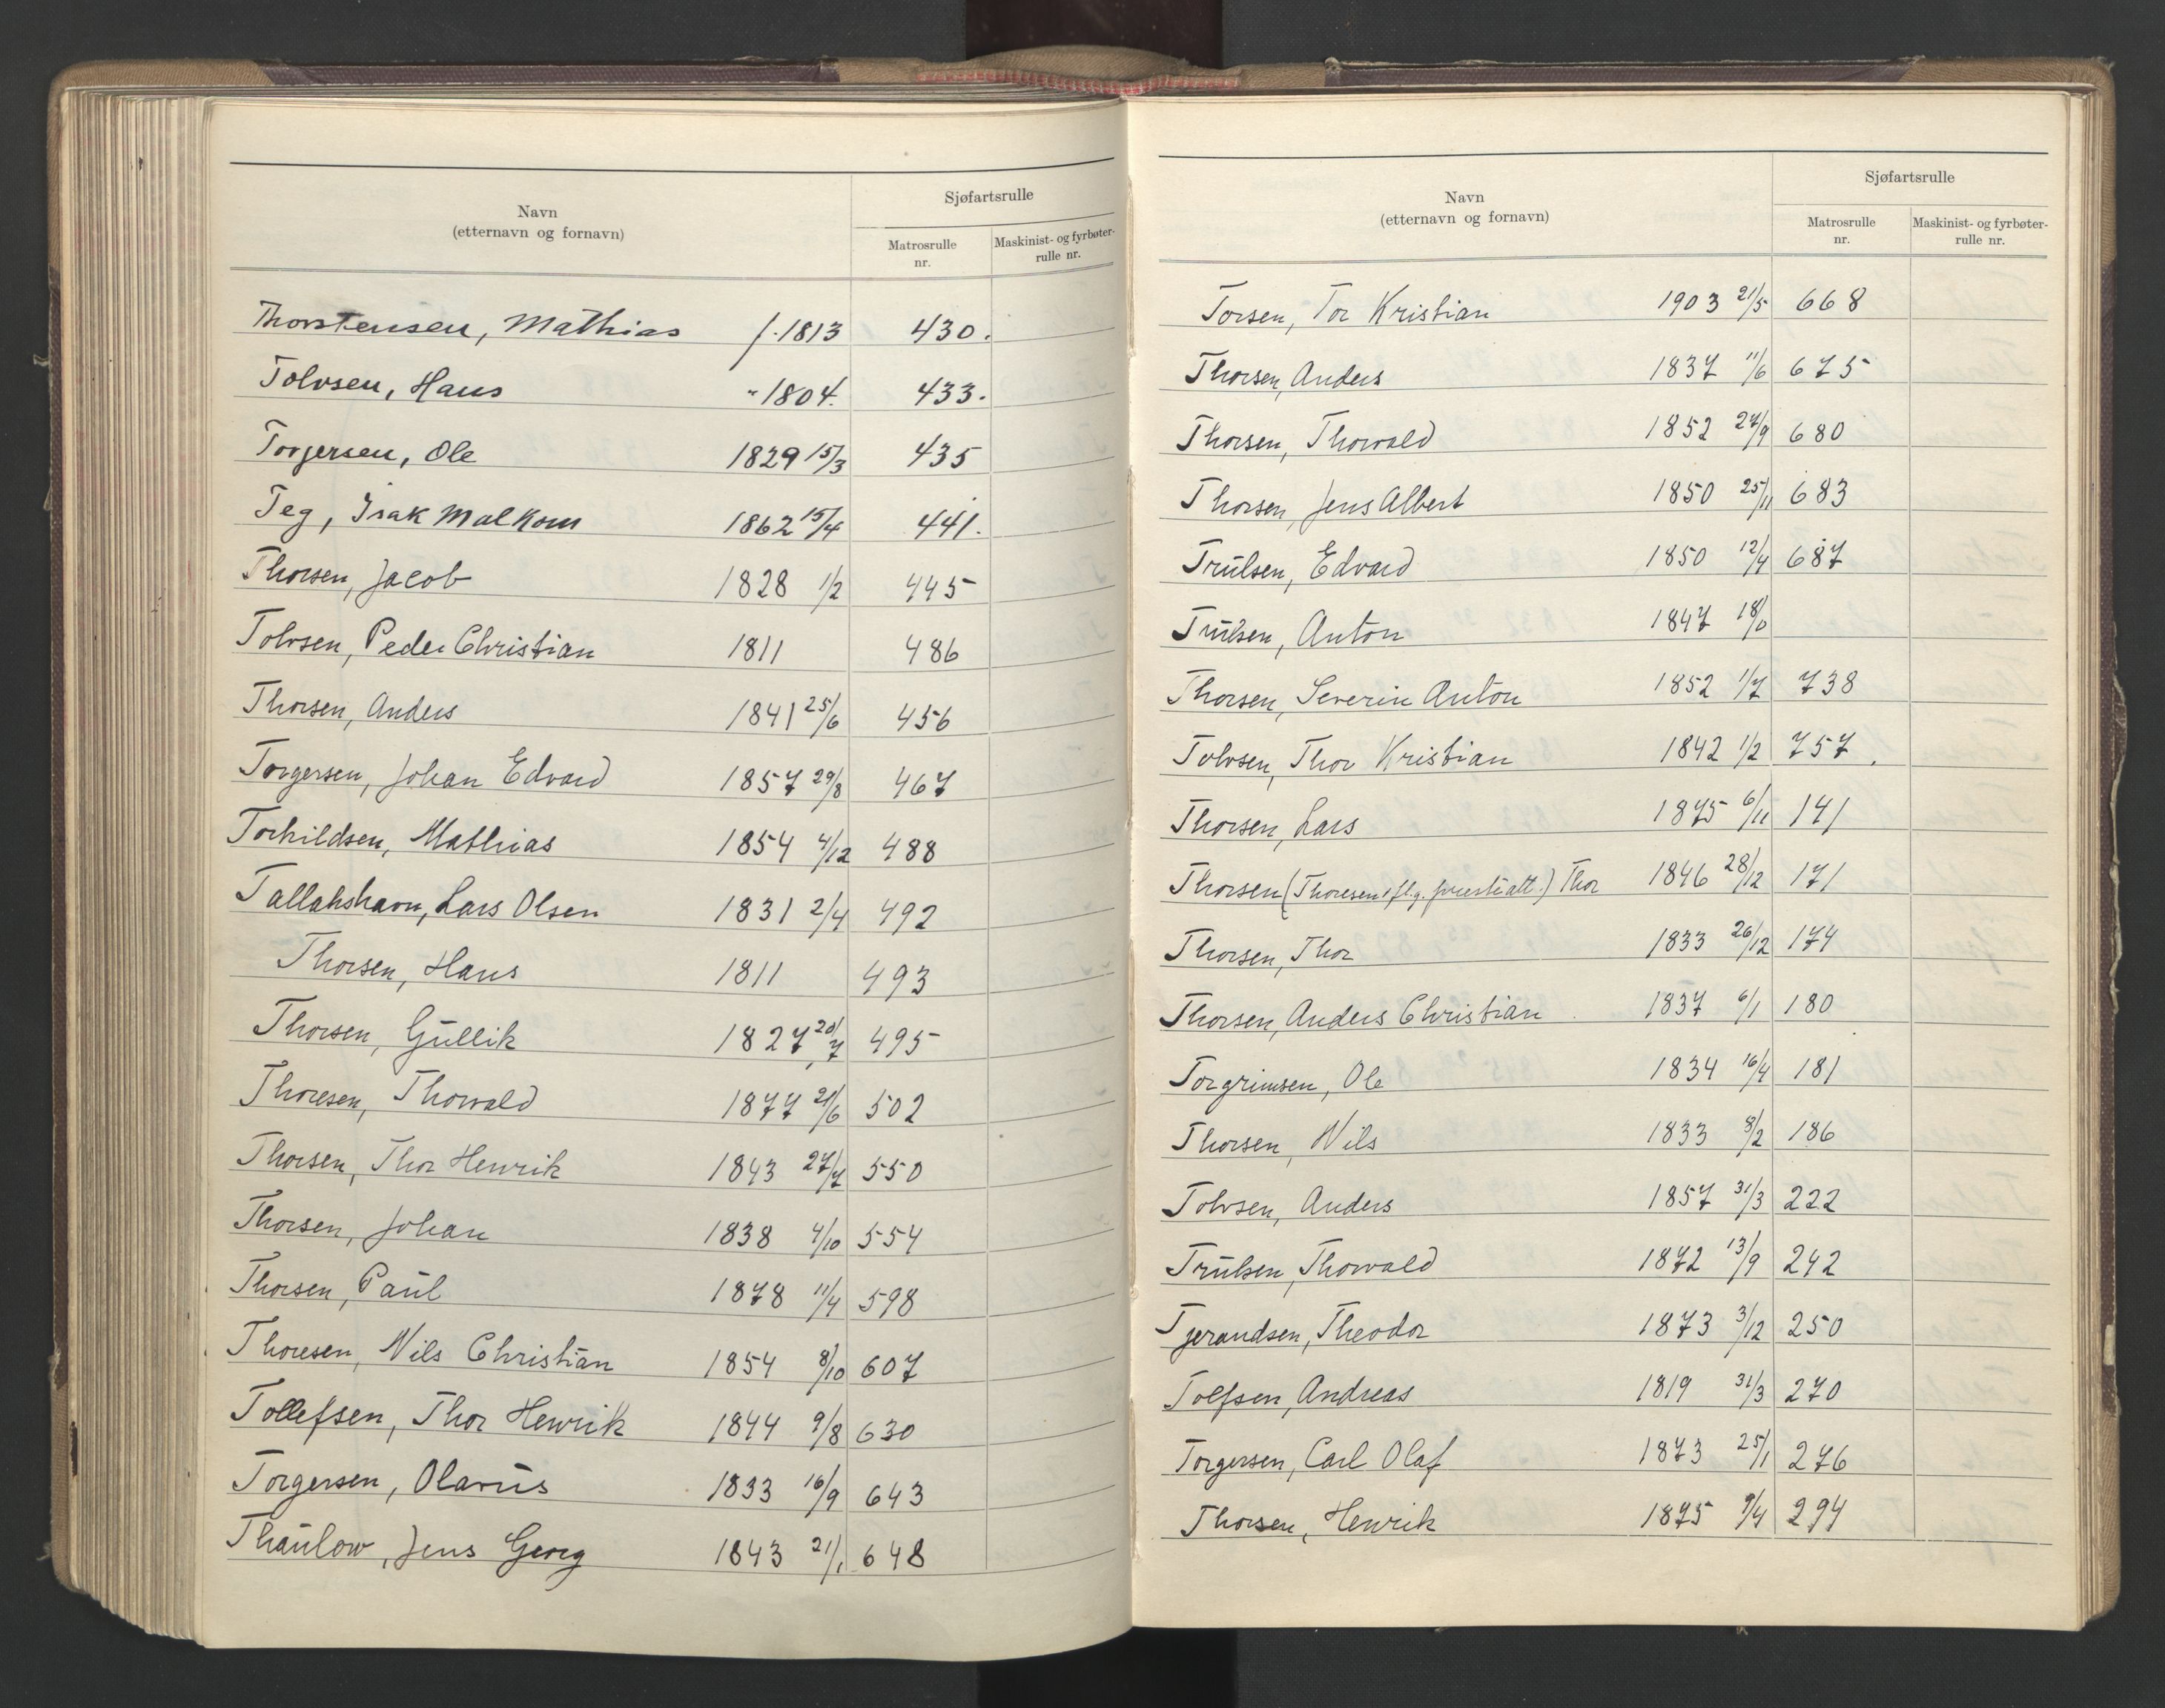 Navn
(etternavn og fornavn)
Sjøfartsrulle
Matrosrulle
nr.
Maskinist- og fyrbøter-
rulle nr.
Thorstensen, Mathias f. 1813 430.
Tolvsen, Hans " 1804. 433.
Torgersen, Ole 1829 15/3 435
Teg, Isak Malkom 1862 15/4 441.
Thorsen, Jacob 1828 1/2 445
Tolvsen, Peder Christian 1811 486
Thorsen, Anders 1841 25/6 456
Torgersen, Johan Edvard 1857 29/8 467
Torkildsen, Mathias 1854 4/12 488
Tallakshavn, Lars Olsen 1831 2/4 492
Thorsen, Hans 1811 493
Thorsen, Gullik 1827 20/7 495
Thoresen, Thorvald 1877 21/6 502
Thorsen, Thor Henrik 1843 27/7 550
Thorsen, Johan 1838 4/10 554
Thorsen, Paul 1878 11/4 598
Thoresen, Nils Christian 1854 8/10 607
Tollefsen, Thor Henrik 1844 9/8 630
Torgersen, Olavus 1833 16/9 643
Thaulow, Jens Georg 1843 21/1 648
Navn
(etternavn og fornavn)
Sjøfartsrulle
Matrosrulle
nr.
Maskinist- og fyrbøter-
rulle nr.
Torsen, Tor Kristian 1903 21/5 668
Thorsen, Anders 1837 11/6 675
Thorsen, Thorvald 1852 27/9 680
Thorsen, Jens Albert 1850 25/11 683
Trulsen, Edvard 1850 12/4 687
Trulsen, Anton 1847
Thorsen, Severin Anton 1852 1/7 738
Tolvsen, Thor Kristian 1842 1/2 757
Thorsen, Lars 1875 6/11 141
Thorsen (Thoresen iflg. ) Thor 1846 28/12 171
Thorsen, Thor 1833 26/12 174
Thorsen, Anders Christian 1837 6/1 180
Torgrimsen, Ole 1834 16/4 181
Thorsen, Nils 1833 8/2 186
Tolvsen, Anders 1857 31/3 222
Trulsen, Thorvald 1872 13/9 242
Tjerandsen, Theodor 1873 3/12 250
Tolfsen, Andreas 1819 31/3 270
Torgersen, Carl Olaf 1873 25/1 276
Thorsen, Henrik 1875 9/4 294